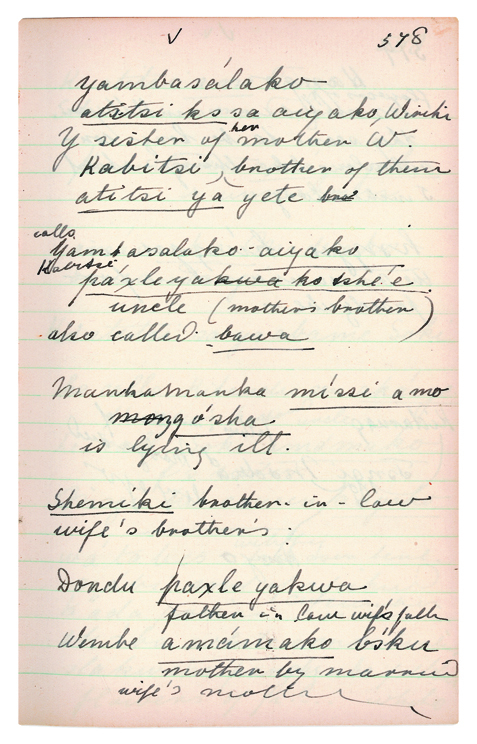 ✓ 578
yambasálako
atitsi ko sa aiyako, Winiki
Y sister of her mother W.
Kabitsi, brother of them
atitsi yá yete
calls
Yambasalako - aiyako
Kabitsi
páxle yakwa ko
uncle (mother's brother)
also called. bawa
Mankamanka míssi a mo
mongósha
is lying ill.
Shemíki brother-in-law
wife's brother's.
Dondu paxle yakwa
father in law wife's fath
Wembe amámako bóku
mother by married
wife's mother